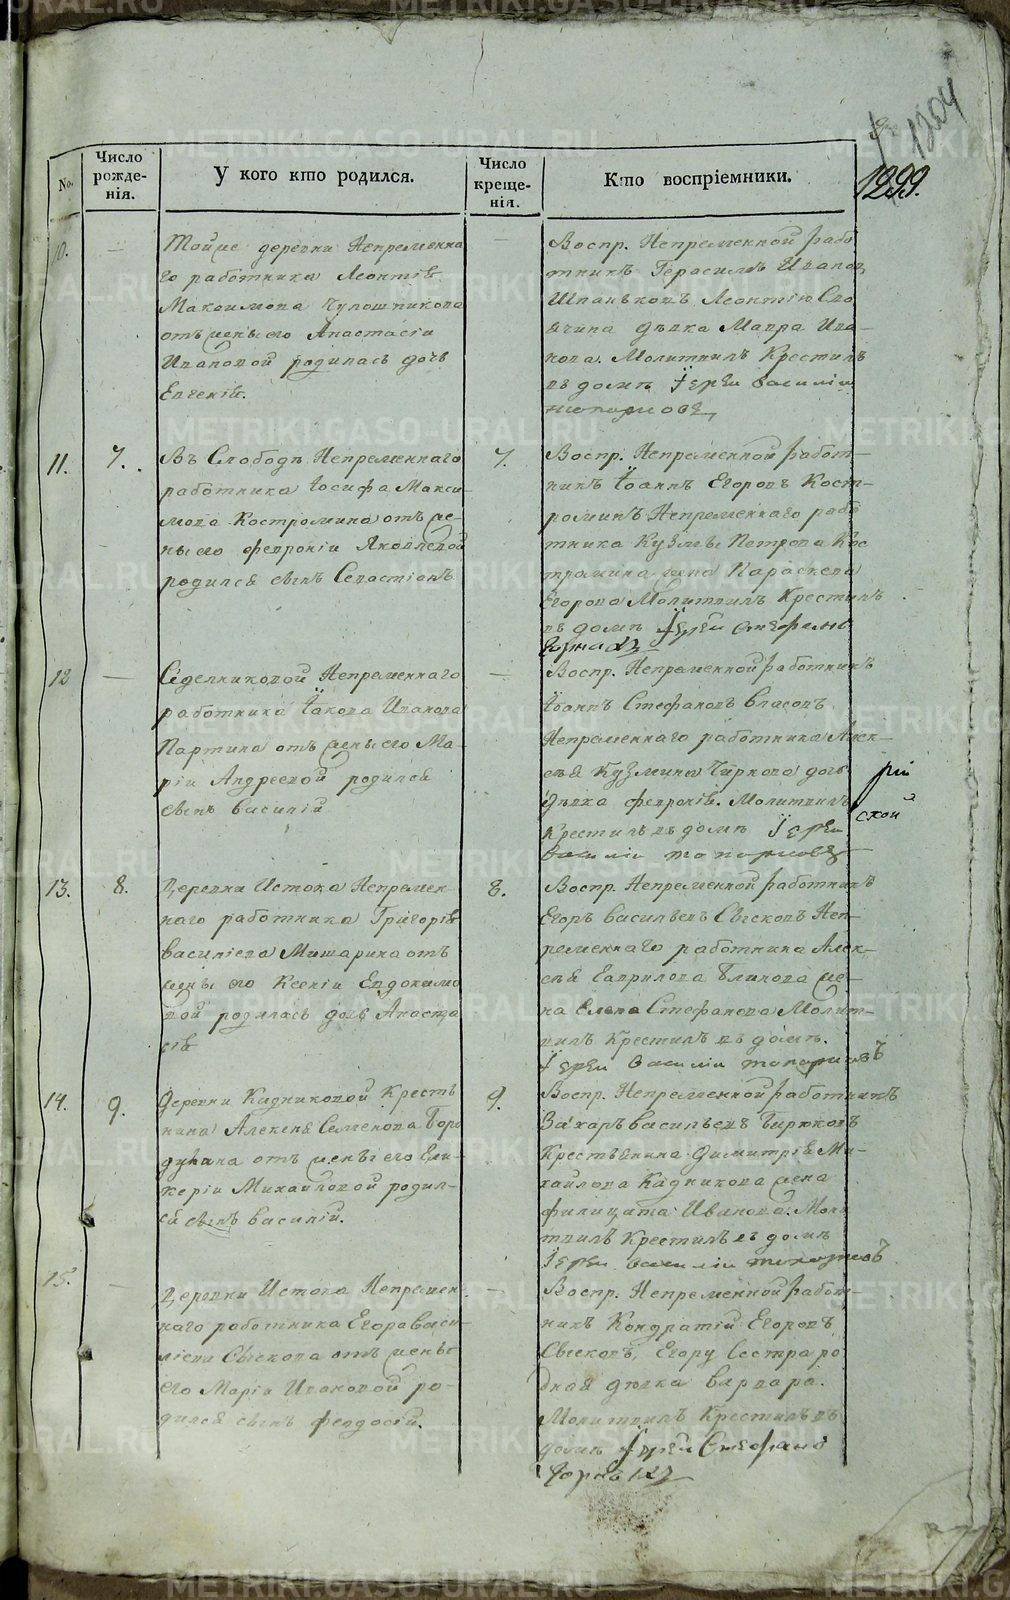 1304
1299.
No.
Число рожде-нія.
У кого кто родился.
Число креще-нія.
Кто воспріемники.
10. —
Тойже деревни Непременна
го работника Леонтія
Максимова Чупошникова
отъ жены его Анастасіи
Ивановой родилась дочь
Евгенія.
—
Воспр. Непременной рабо
тникъ Герасимъ Иванов
Шпаньковъ Леонтію Сво
ячина дѣвка Мавра Ива-
нова. Молитвилъ Крестилъ
въ домѣ Іерей Василіи
Топорковъ
11. 7.
Въ Слободѣ Непременнаго
работника Іосифа Макси-
мова Костромина отъ же-
ны его Февроніи Яковлевой
родился сынъ Севастіанъ
7.
Воспр. Непременной работ-
никъ Іоаннъ Егоровъ Кост-
роминъ Непременнаго рабо
тника Кузмы Петрова Кос
трамина жена Параскева
Егорова Молитвилъ Крестилъ
въ домѣ Іерей Стефанъ
12 —
Сѣделниковой Непременнаго
работника Іакова Иванова
Партина отъ жены его Ма-
ріи Андреевой родился
сынъ Василій
—
Воспр. Непременной работникъ
Іоаннъ Стефановъ Власовъ
Непременнаго работника Алек-
сѣя Кузмина Чиркова дочь
дѣвка Февронія. Молитвилъ
Крестилъ въ домѣ Іерей
Василіи Топорковъ
рій
ской
13. 8.
Деревни Истока Непремен-
наго работника Григорія
Василіева Мишарина отъ
жены его Ксеніи Евдокимо
вой родилась дочь Анаста
сія
8.
Воспр. Непременной работникъ
Егоръ Васильевъ Сысковъ Неп-
ременнаго работника Алек-
сѣя Гаврилова Блинова же-
на Елена Стефанова Молит-
вилъ Крестилъ въ домѣ.
Іерей Василіи Топорковъ
14. 9.
Деревни Кадниковой Кресть
янина Алексѣя Семенова Бор
духина отъ жены его Гли-
керіи Михайловой родил-
ся сынъ Василій.
9.
Воспр. Непременной работникъ
Захаръ Васильевъ Бирюковъ
Крестьянина Димитрія Ми-
хайлова Кадникова жена
Филицата Иванова. Моли
твилъ Крестилъ въ домѣ
Іерей Василіи Топорковъ
15. —
Деревни Истока Непремен-
наго работника Егора Васи-
ліева Сыскова отъ жены
его Маріи Ивановой ро-
дился сынъ Феодосій.
—
Воспр. Непременной работ-
никъ Кондратій Егоровъ
Сысковъ, Егору Сестра ро
дная дѣвка Варвара.
Молитвилъ Крестилъ въ
домѣ Іерей Стефанъ
METRIKI.GASO-URAL.RU